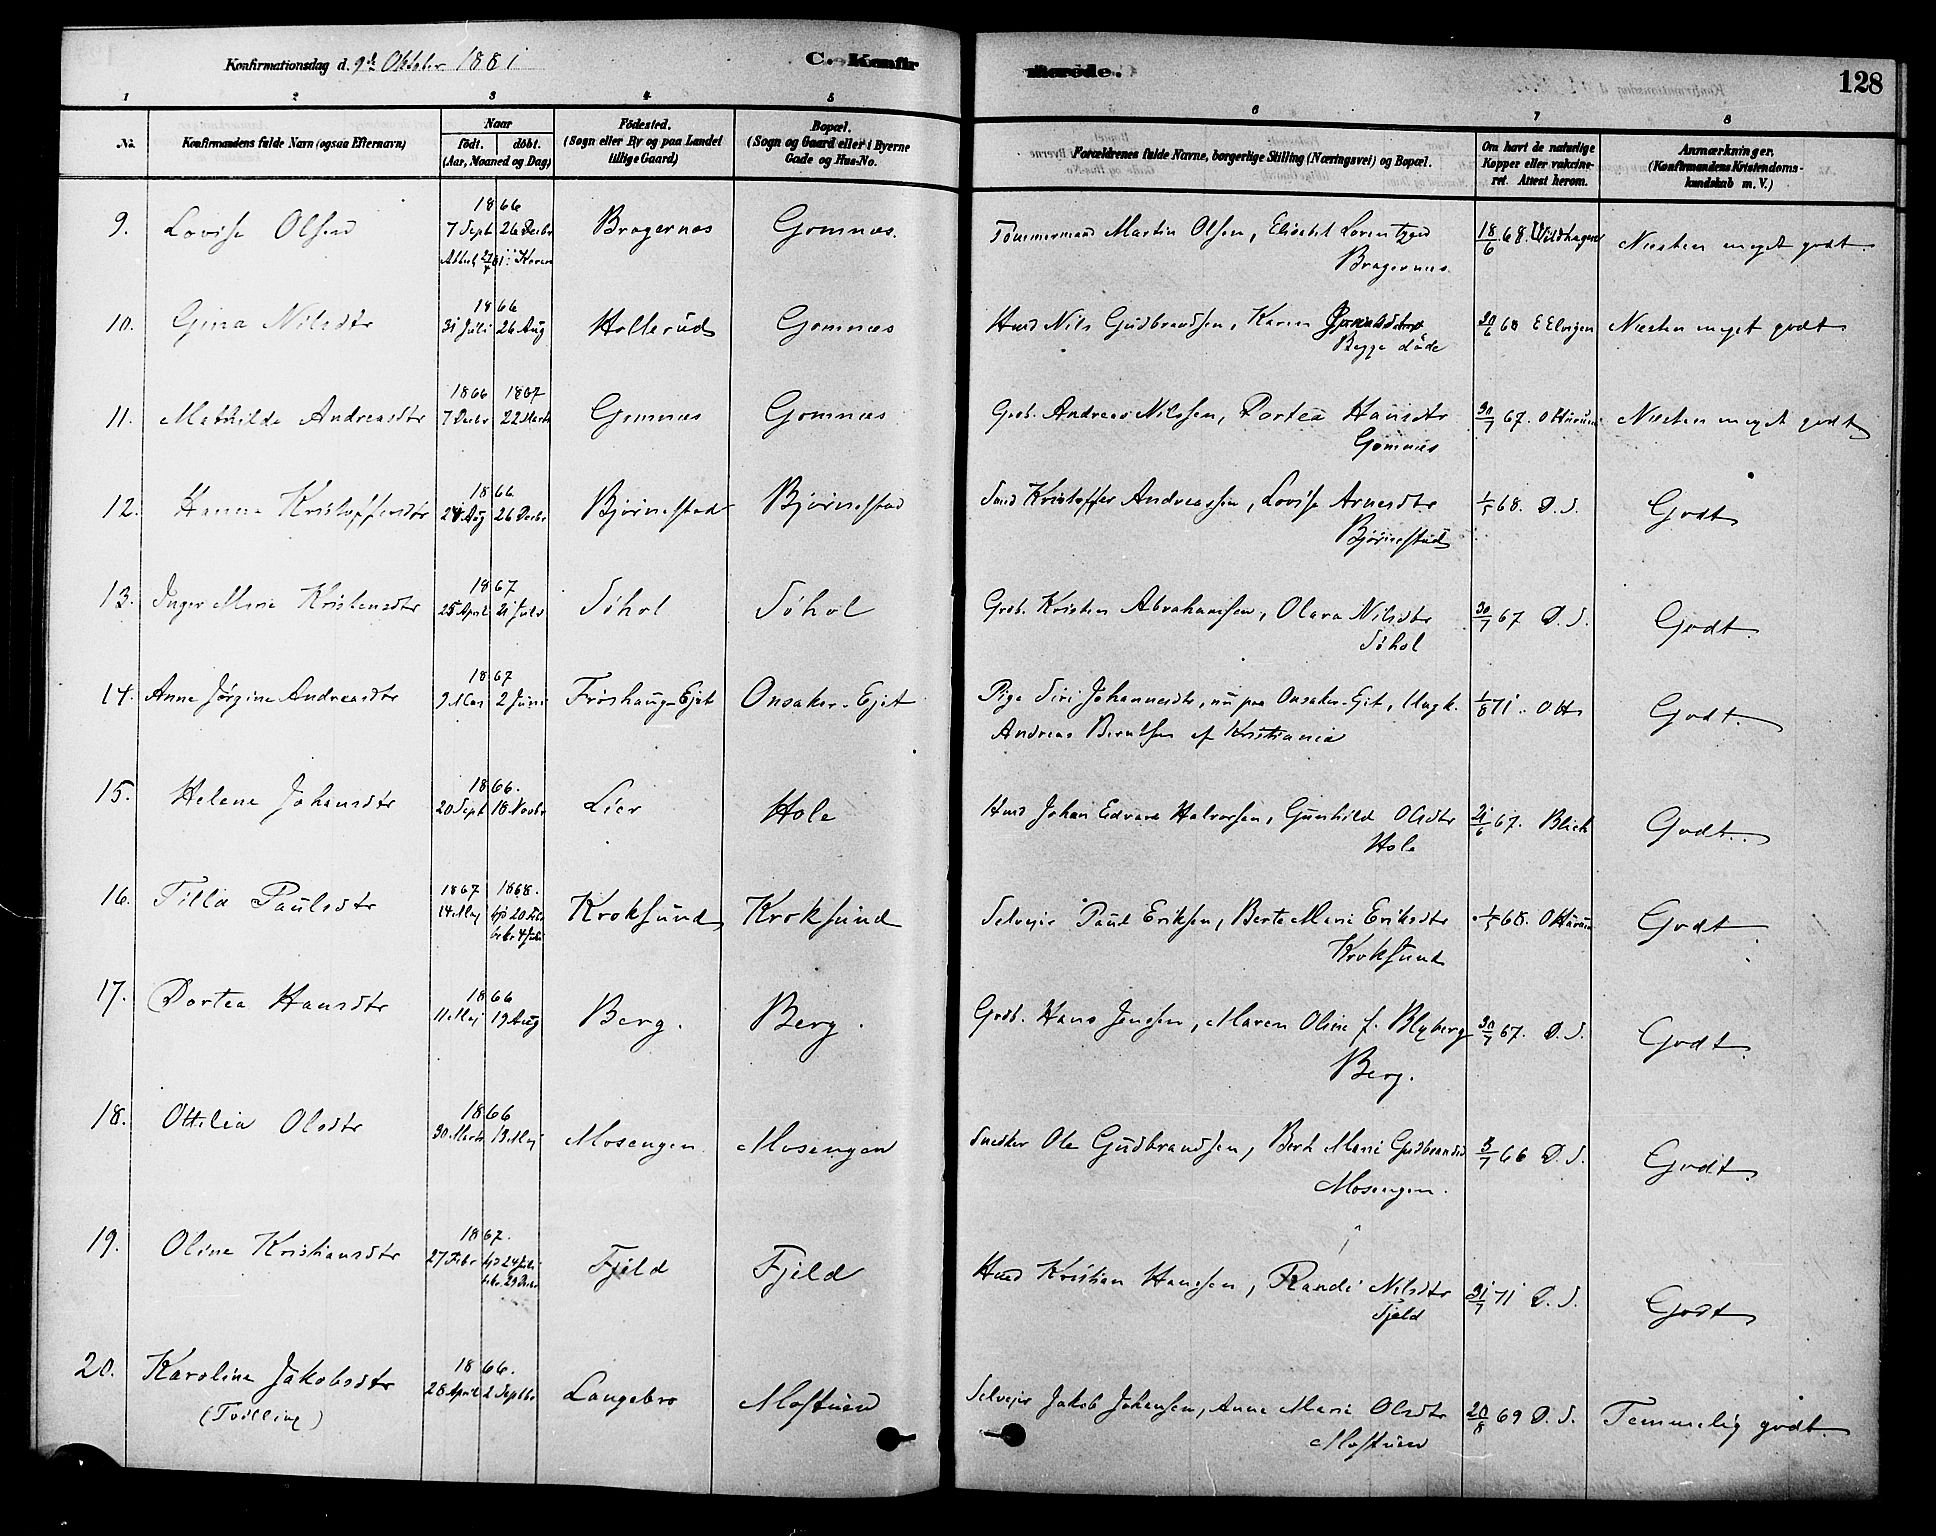 Konfirmationsdag d. 9de Oktober 1881
C. Konfir
merede.
128
1 2 3 4 5 6 7 8
No.
Konfirmandens fulde Navn (ogsaa Efternavn)
Naar
födt. döbt.
(Aar, Maaned og Dag)
Födested.
(Sogn eller By og paa Landet
tillige Gaard)
Bopæl.
(Sogn og Gaard eller i Byerne
Gade og Hus-No.
Forældrenes fulde Navne, borgerlige Stilling (Næringsvei) og Bopæl.
Om havt de naturlige
Kopper eller vakcine-
ret. Attest herom.
Anmærkninger.
(Konfirmandens Kristendoms-
kundskab m. V.)
9. Lovise Olsen 1866 7 Sept 26 Decbr Bragernes Gomnæs. Tømmermand Martin Olsen, Elisabet Bragernes 18/6 68. Wildhagen Næsten meget godt
10. Gina Nilsdtr 1866 31 Juli 26 Aug Hollerud Gomnæs Husd Nils Gudbrandsen, Karen Begge døde 20/6 68 E Elvigen Næsten meget godt
11. Mathilde Andreasdtr 1866 1867 7 Decbr 22 Marts Gomnæs Gomnæs Grdb. Andreas Nilssen, Dortea Hansdtr Gomnæs 30/7 67. O Næsten meget godt
12. Hanna Kristoffersdtr 1866 28 Aug 26 Decbr Bjørnestad Bjørnestad Kristoffer Andreassen, Lovise Arnesdtr Bjørnestad 68. D. S. Godt
13. Inger Marie Kristensdtr 1867 25 April 21 Juli Søhol Søhol Grdb. Kristen Abrahamsen, Olava Nilsdtr Søhol 30/7 67 D. S. Godt.
14. Anne Jørgine Andreasdtr 1867 9 Mar 2 Juni Frøshaug-Ejet Onsaker-Ejet Pige Siri Johannesdtr, nu paa Onsaker-Ejt, Ungk. Andreas Berntsen af Kristiania 1/8 71. O. H Godt.
15. Helene Johansdtr 1866. 20 Sept 18 Novbr Lier Hole Husd Johan Edvard Halvorsen, Gunhild Olsdtr Hole 21/6 67. Blich Godt.
16. Tilla Paulsdtr 1867 1868. 14 Maj hjd 20 Febr bekr 4 Juli Kroksund Kroksund Selvejer Paul Eriksen, Berte Marie Eriksdtr Kroksund 68. O Godt
17. Dortea Hansdtr 1866 11 Maj 19 Aug Berg. Berg. Grdb. Hans Jensen, Maren Oline f. Blyberg Berg. 30/7 67. D. S. Godt.
18. Ottilia Olsdtr 1866 30 Marts 13 Maj Mosengen Mosengen Snedker Ole Gudbrandsen, Bert Marie Gudbrandsd Mosengen. 3/7 66 D. S. Godt.
19. Oline Kristiansdtr 1867. 27 Febr hjd 24 Juli bekr. 29 Decbr Fjeld Fjeld Husd Kristian Hansen, Randi Nilsdtr Fjeld 31/7 71 D. S. Godt
20. Karoline Jakobsdtr (Tvilling) 1866. 28 April 2 Septbr Langebro Mostuen Selvejer Jakob Johansen, Anne Marie Olsdtr Mostuen 20/8 69 D. S. Temmelig godt.